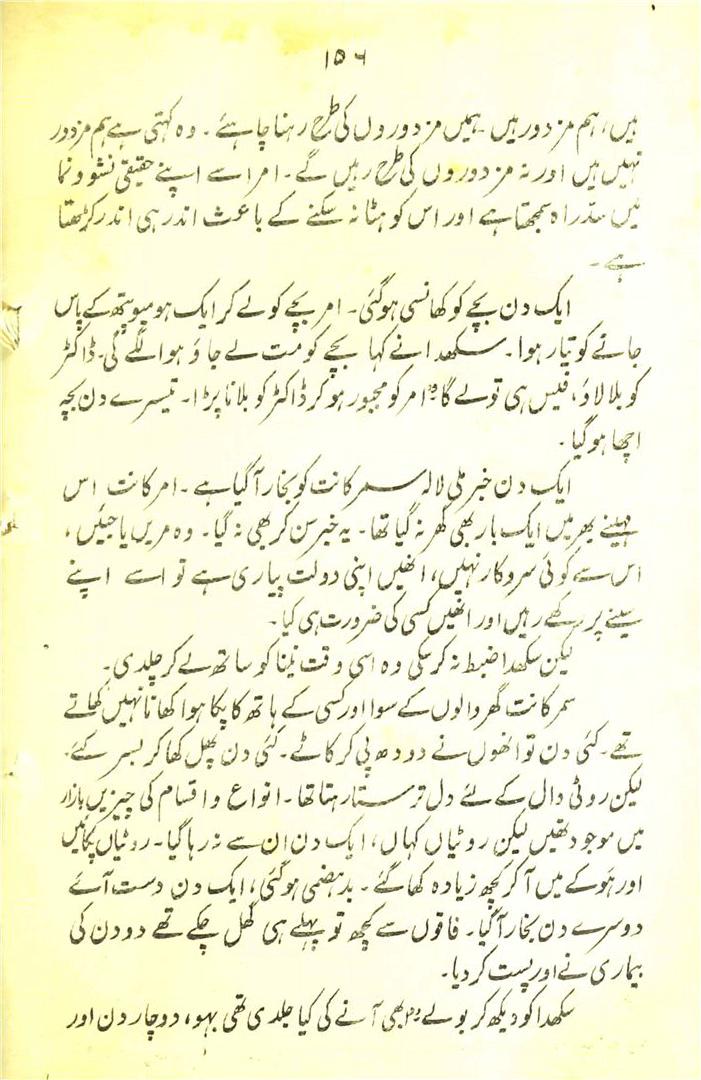 ۱۵۶
ہیں، ہم مزدور ہیں ہمیں مزدوروں کی طرح رہنا چاہئے۔ وہ کہتی ہے ہم مزدور
نہیں ہیں اور نہ مزدوروں کی طرح رہیں گے۔ امر اسے اپنے حقیقی نشو و نما
میں سدِّراہ سمجھتا ہے اور اس کو ہٹا نہ سکنے کے باعث اندر ہی اندر کڑھتا
ہے۔
ایک دن بچے کو کھانسی ہوگئی۔ امر بچے کو لے کر ایک ہومیوپیتھ کے پاس
جانے کو تیار ہوا۔ سکھدا نے کہا بچے کو مت لے جاؤ ہوا لگے گی۔ ڈاکٹر
کو بلا لاؤ، فیس ہی تو لے گا" امر کو مجبور ہو کر ڈاکٹر کو بلانا پڑا۔ تیسرے دن بچہ
اچھا ہو گیا۔
ایک دن خبر ملی لالہ سمر کانت کو بخار آ گیا ہے۔ امر کانت اس
مہینے بھر میں ایک بار بھی گھر نہ گیا تھا۔ یہ خبر سن کر بھی نہ گیا۔ وہ مریں یا جئیں،
اس سے کوئی سروکار نہیں، انھیں اپنی دولت پیاری ہے تو اسے اپنے
سینے پر رکھے رہیں اور انھیں کسی کی ضرورت ہی کیا۔
لیکن سکھدا ضبط نہ کر سکی وہ اسی وقت نینا کو ساتھ لے کر چلدی۔
سمر کانت گھر والوں کے سوا اور کسی کے ہاتھ کا پکا ہوا کھانا نہیں کھاتے
تھے۔ کئی دن تو انھوں نے دودھ پی کر کاٹے۔ کئی دن پھل کھا کر بسر کئے۔
لیکن روٹی دال کے لئے دل ترستا رہتا تھا۔ انواع و اقسام کی چیزیں بازار
میں موجود تھیں لیکن روٹیاں کہاں، ایک دن ان سے نہ رہا گیا۔ روٹیاں پکائیں
اور ہَوکے میں آ کر کچھ زیادہ کھا گئے۔ بدہضمی ہو گئی، ایک دن دست آئے
دوسرے دن بخار آ گیا۔ فاقوں سے کچھ تو پہلے ہی گھل چکے تھے دو دن کی
بیماری نے اور پست کر دیا۔
سکھدا کو دیکھ کر بولے "ابھی آنے کی کیا جلدی تھی بہو، دو چار دن اور